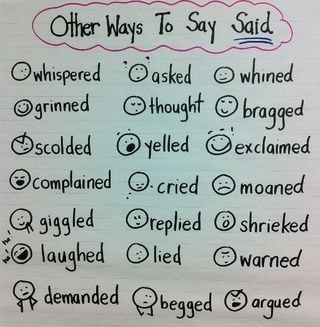 Other Ways To Say Said
whispered asked whined
grinned thought bragged
scolded yelled exclaimed
complained cried moaned
giggled replied shrieked
ha! ha! laughed lied warned
demanded begged argued